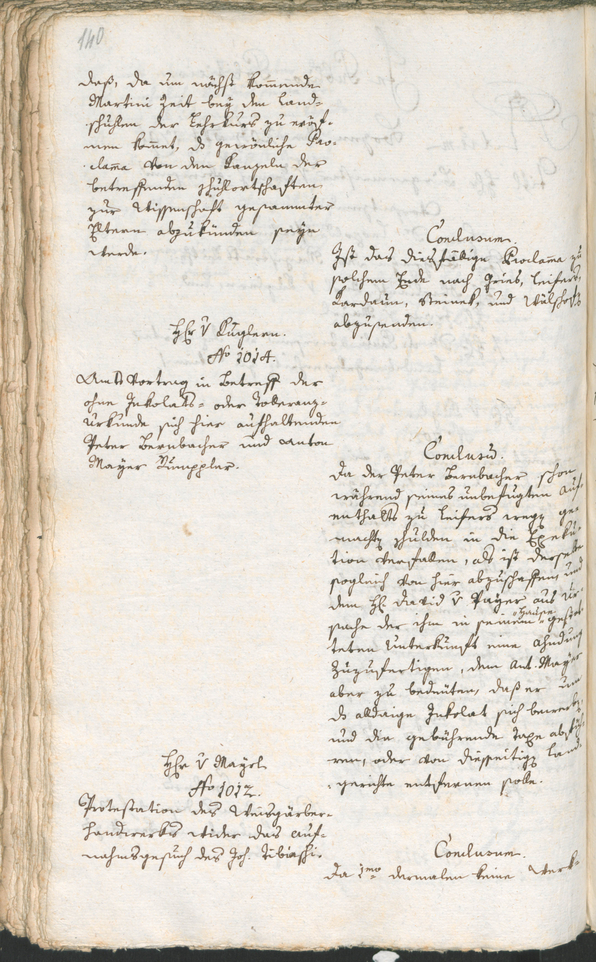 140
daß, da um nächst kommende
Martini Zeit bey den Land-
schuhlen der Lehrkurs zu eröf-
nen kommt, die gewönliche Pro-
clama von den Kanzeln der
betreffenden Schulortschaften
zur Wissenschaft gesammter
Eltern abzukünden seyn
werde.
Conclusum.
Ist das diesfällige Proclama zu
solchem Ende nach Gries, Leifers,
Kardaun, Steinek, und Wälschnofn
abzusenden.
Hr v Kugler.
No 1014.
Amts Vortrag in Betreff der
ohne Inkolats- oder Toleranz-
urkunde sich hier aufhaltenden
Peter Bernbacher und Anton
Mayer
Conclusum.
Da der Peter Bernbacher schon
während seines unbefugten Auf-
enthalts zu Leifers wegen ge-
machten Schulden in die Exeku-
tion verfallen, als ist derselbe
sogleich von hier abzuschaffen, und
dem H. David v Payer aus Ur-
sache der ihm in seinem Hause gestat-
teten Unterkunft eine Ahndung
zuzufertigen, dem Ant. Mayer
aber zu bedeuten, daß er um
das alldaige Inkolat sich bewerben
und die gebührende Taxe abführ-
ren, oder von diesseitigen Land-
gerichte entfernen solle.
Hr v Mayrl.
No 1012.
Protestation des Weisgärber-
handwerks wider das Auf-
nahmsgesuch des Joh. Tibiaschi.
Conclusum.
Da 1mo dermalen keine Werk-